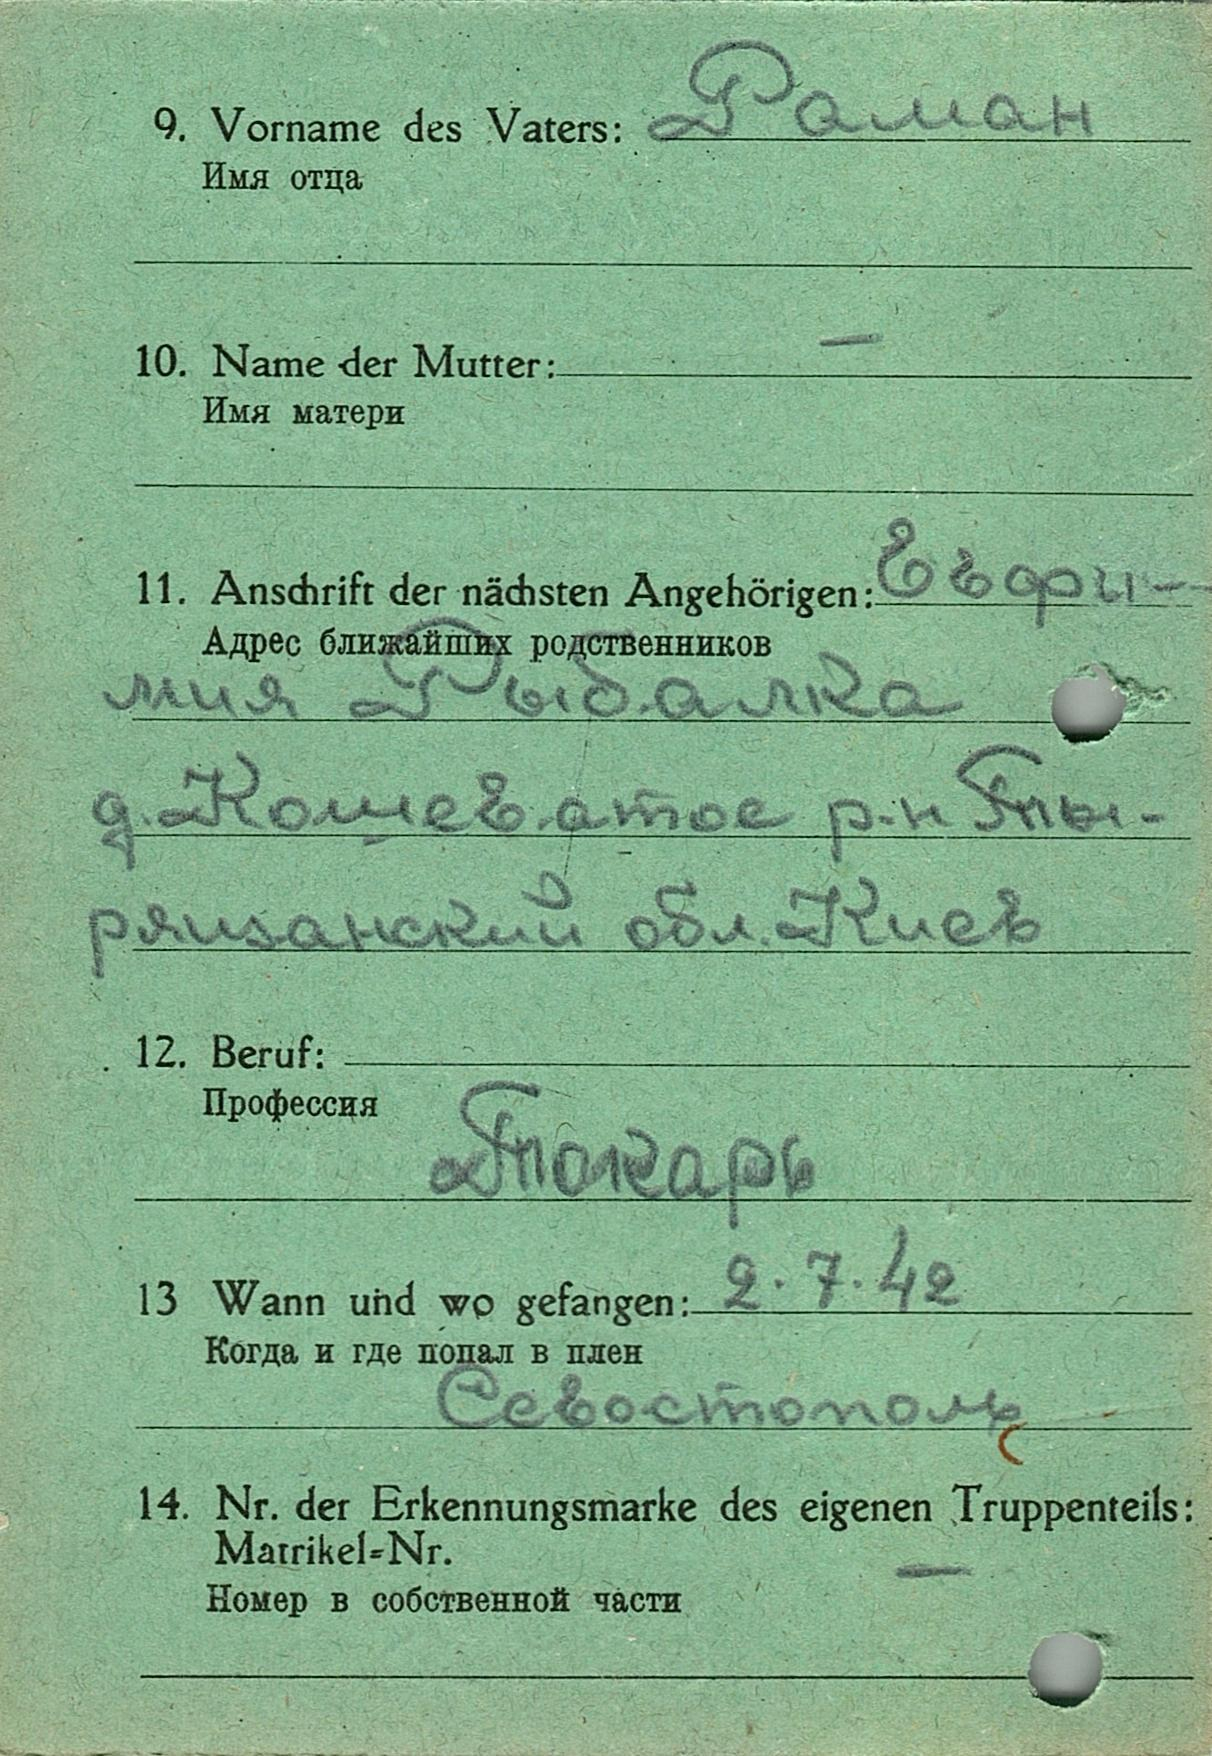 9. Vorname des Vaters: Раман
Имя отца
10. Name der Mutter: —
Имя матери
11. Anschrift der nächsten Angehörigen: Евфи-
Адрес ближайших родственников
мия Рыбалка
д. Кошеватое р-н Ты-
рянзанский обл. Киев
12. Beruf:
Профессия
Токарь
13 Wann und wo gefangen: 2.7.42
Когда и где попал в плен
Севостополь
14. Nr. der Erkennungsmarke des eigenen Truppenteils:
Matrikel=Nr. —
Номер в собственной части